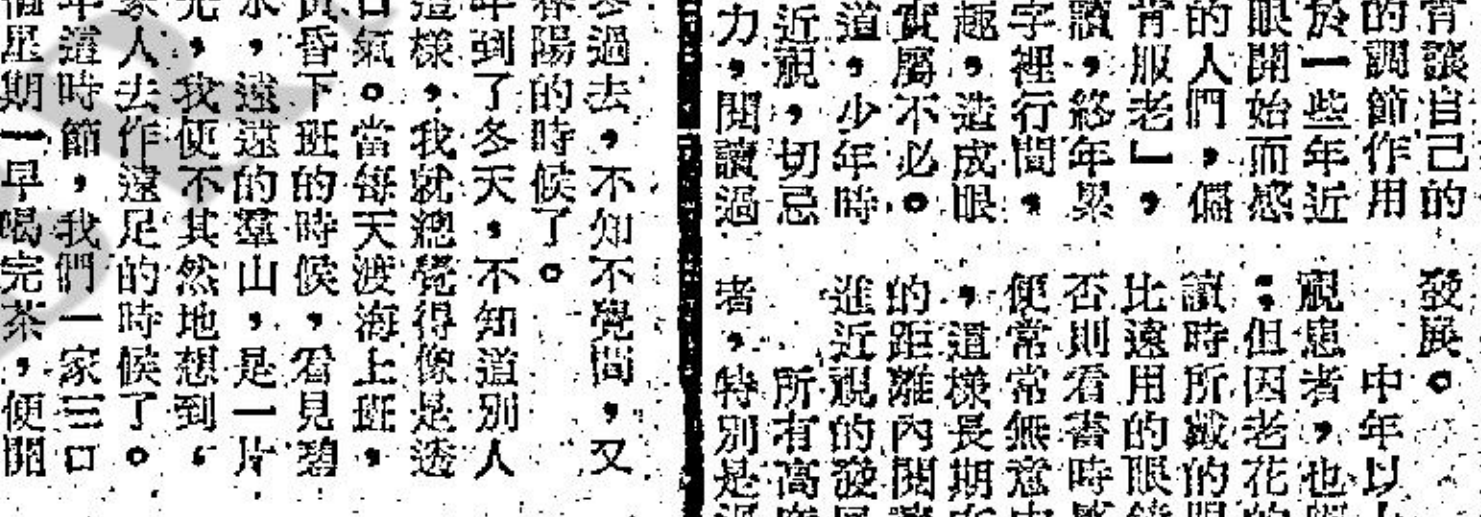 肯讓自己的
的調節作用
於一些年近
眼開始而感
的人們，偏
肯服老」，
讀，終年累
字裡行間，
趣，造成眼
實屬不必。
道，少年時
近視，切忌
力，閱讀過
發展。
中年以
視患者，也
；但因老花的
讀時所戴的眼
比遠用的眼鏡
否則看書時
便常常無意中
，這樣長期在
的距離內閱讀
進近視的發展
所有高度
者，特別是過
過去，不知不覺間，又
春陽的時候了。
年到了冬天，不知道別人
這樣，我就總覺得像是透
口氣。當每天渡海上班，
黃昏下班的時候，看見碧
水，遠遠的羣山，是一片
光，我便不其然地想到，
家人去作遠足的時候了。
年這時節，我們一家三口
個星期一早喝完茶，便開